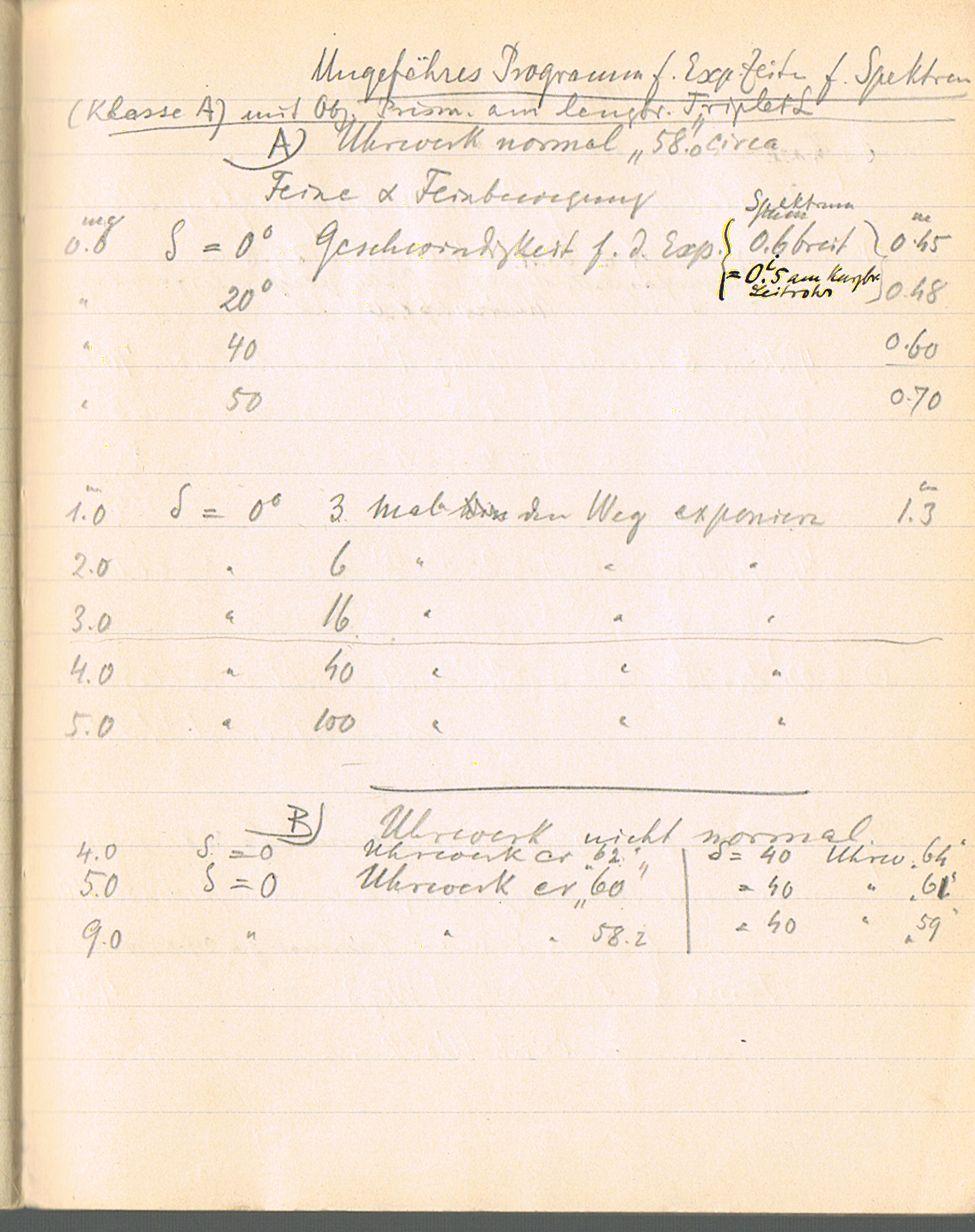 Ungefähres Programm f. Exp. Zeiten f. Spektren
(Klasse A) mit Obj. Prism. am langbr. Triplet
A) Uhrwerk normal „58.0" circa
Feine α Feinbewegung
Spektrum
mg
0.0 δ = 0° Geschwindigkeit f. d. Exp. { 0.6 breit } 0.45
= 0.5 am Kurzbr.
Leitrohr
" 20° 0.48
" 40 0.60
" 50 0.70
1.0 δ = 0° 3 mal den Weg exponieren 1.3
2.0 " 6 " " "
3.0 " 16 " " "
4.0 " 40 " " "
5.0 " 100 " " "
B) Uhrwerk nicht normal
4.0 δ = 0 Uhrwerk cr „62" δ = 40 Uhrw. „64"
5.0 δ = 0 Uhrwerk cr „60" = 40 " „61"
9.0 " " " 58.2 = 40 " „59"